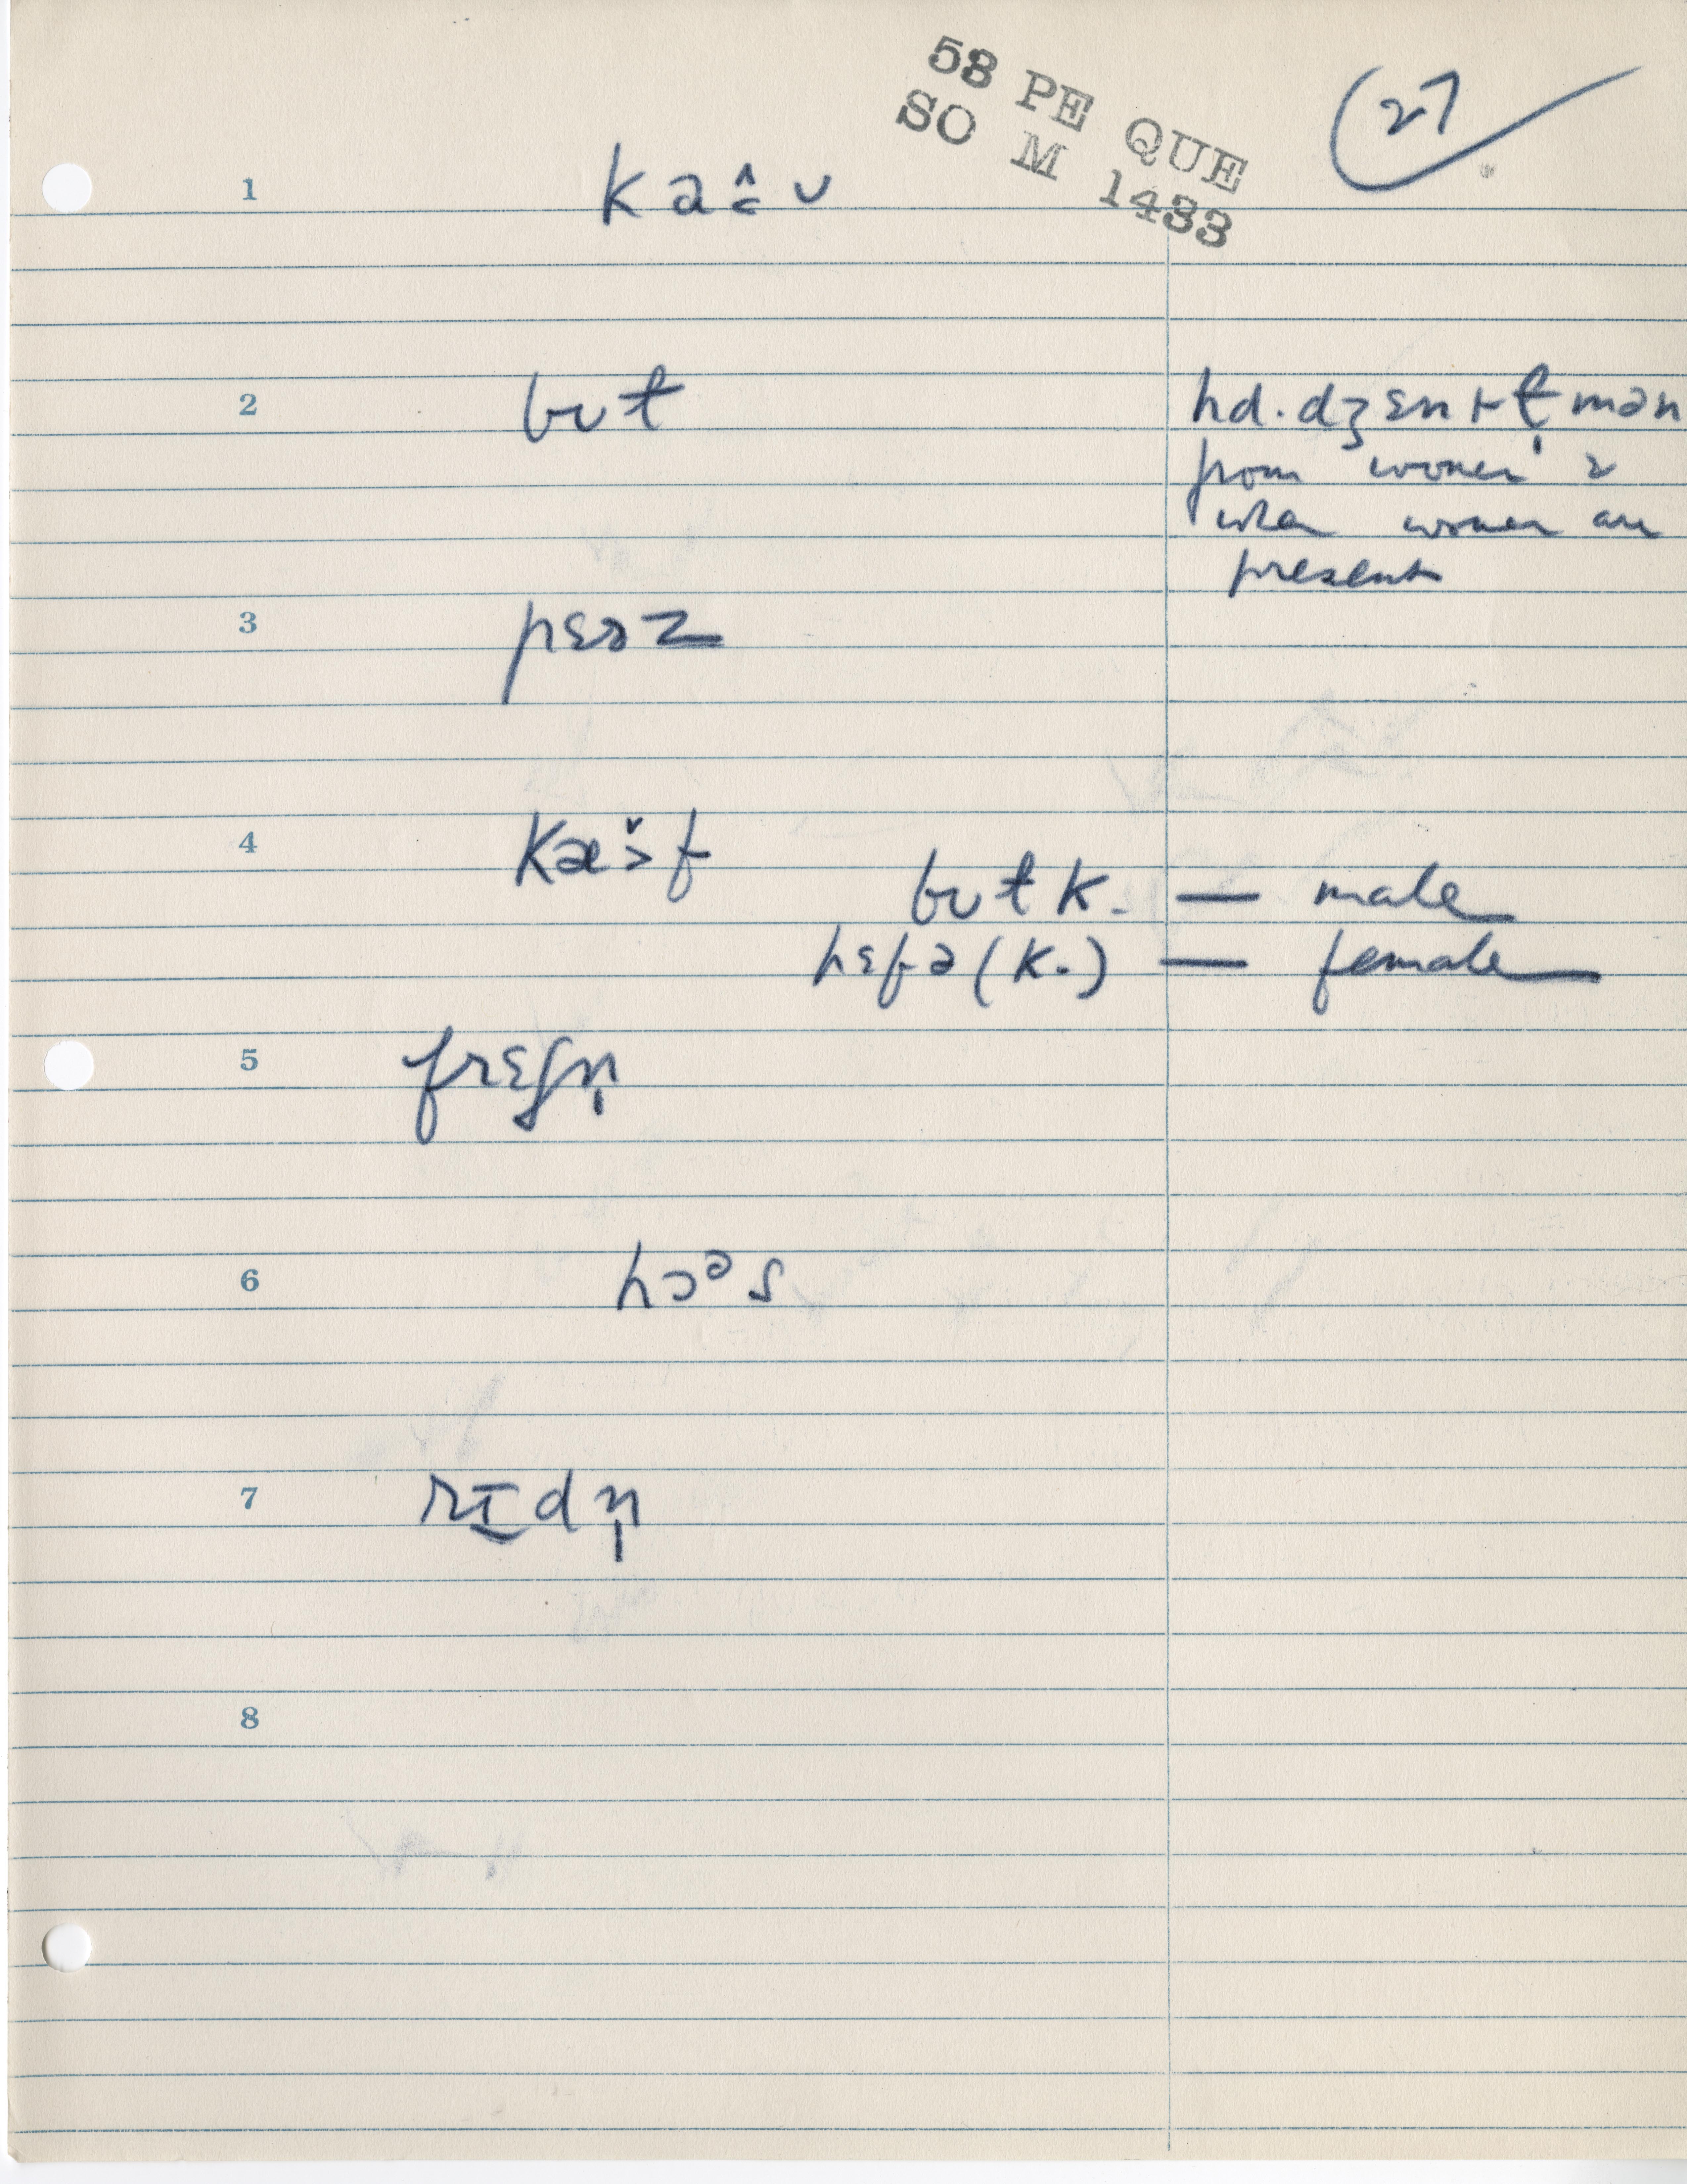 58 PE QUE
SO M 1433
27
1 ka ᴗ
2 bʊt
hd. dʒɛntmən
from women &
when women are
present
3 pɛəz
4 kæf
bʊt k. — male
hɛfə (k.) — female
5 frɛʃn̩
6 hɔᵊs
7 rɪdn̩
8